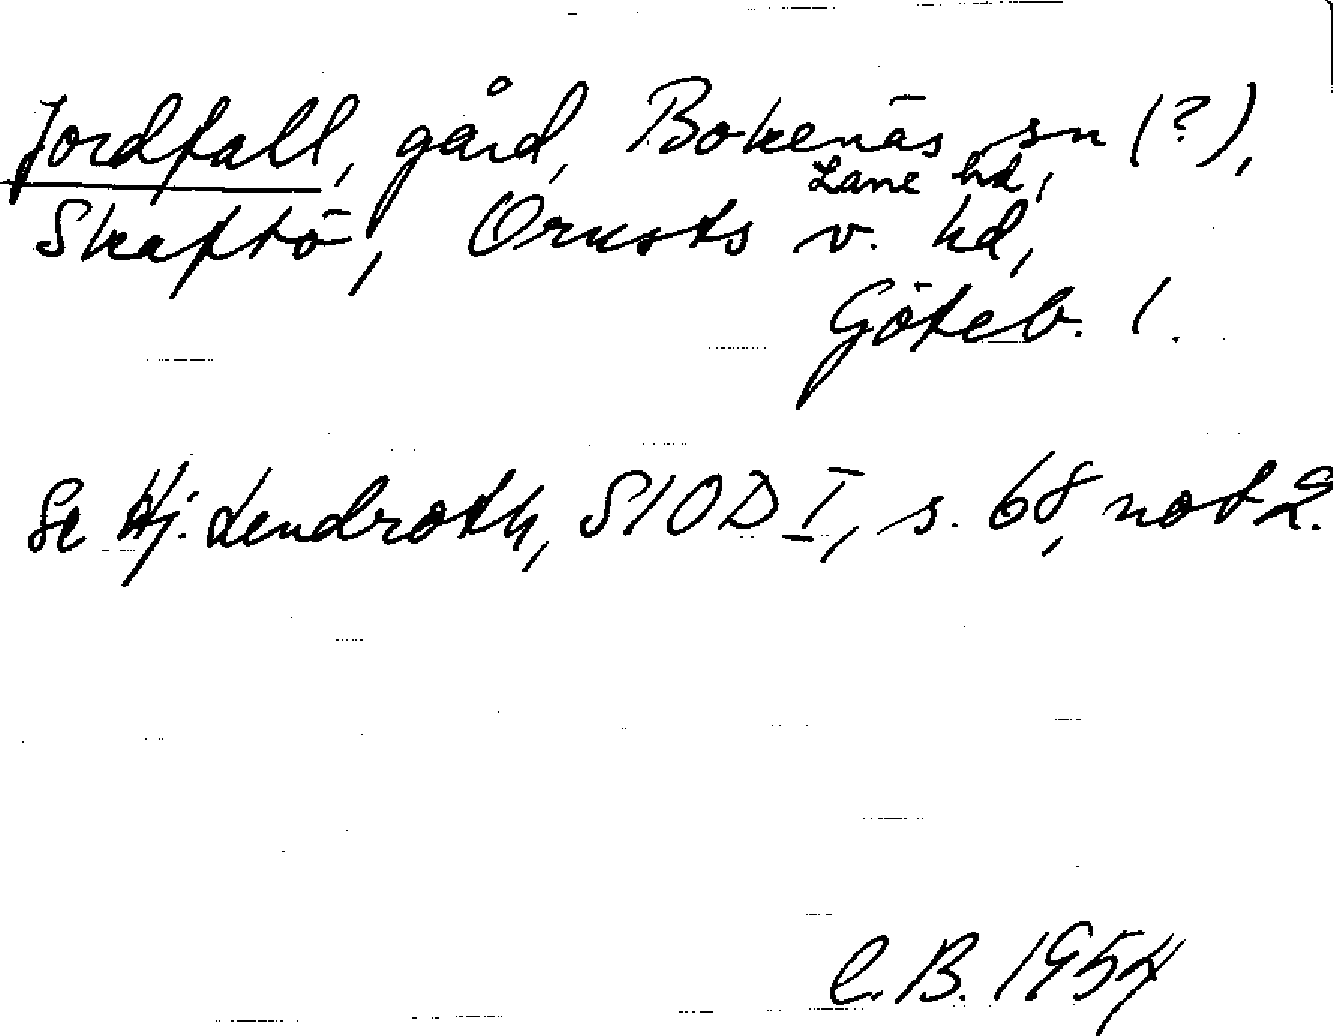 Jordfall, gård, Bokenäs sn (?),
Lane hd,
Skaftö, Orusts v. hd,
Göteb. l.
Se Hj. Lendroth, SIOD I, s. 68, not 2.
C.B. 1954